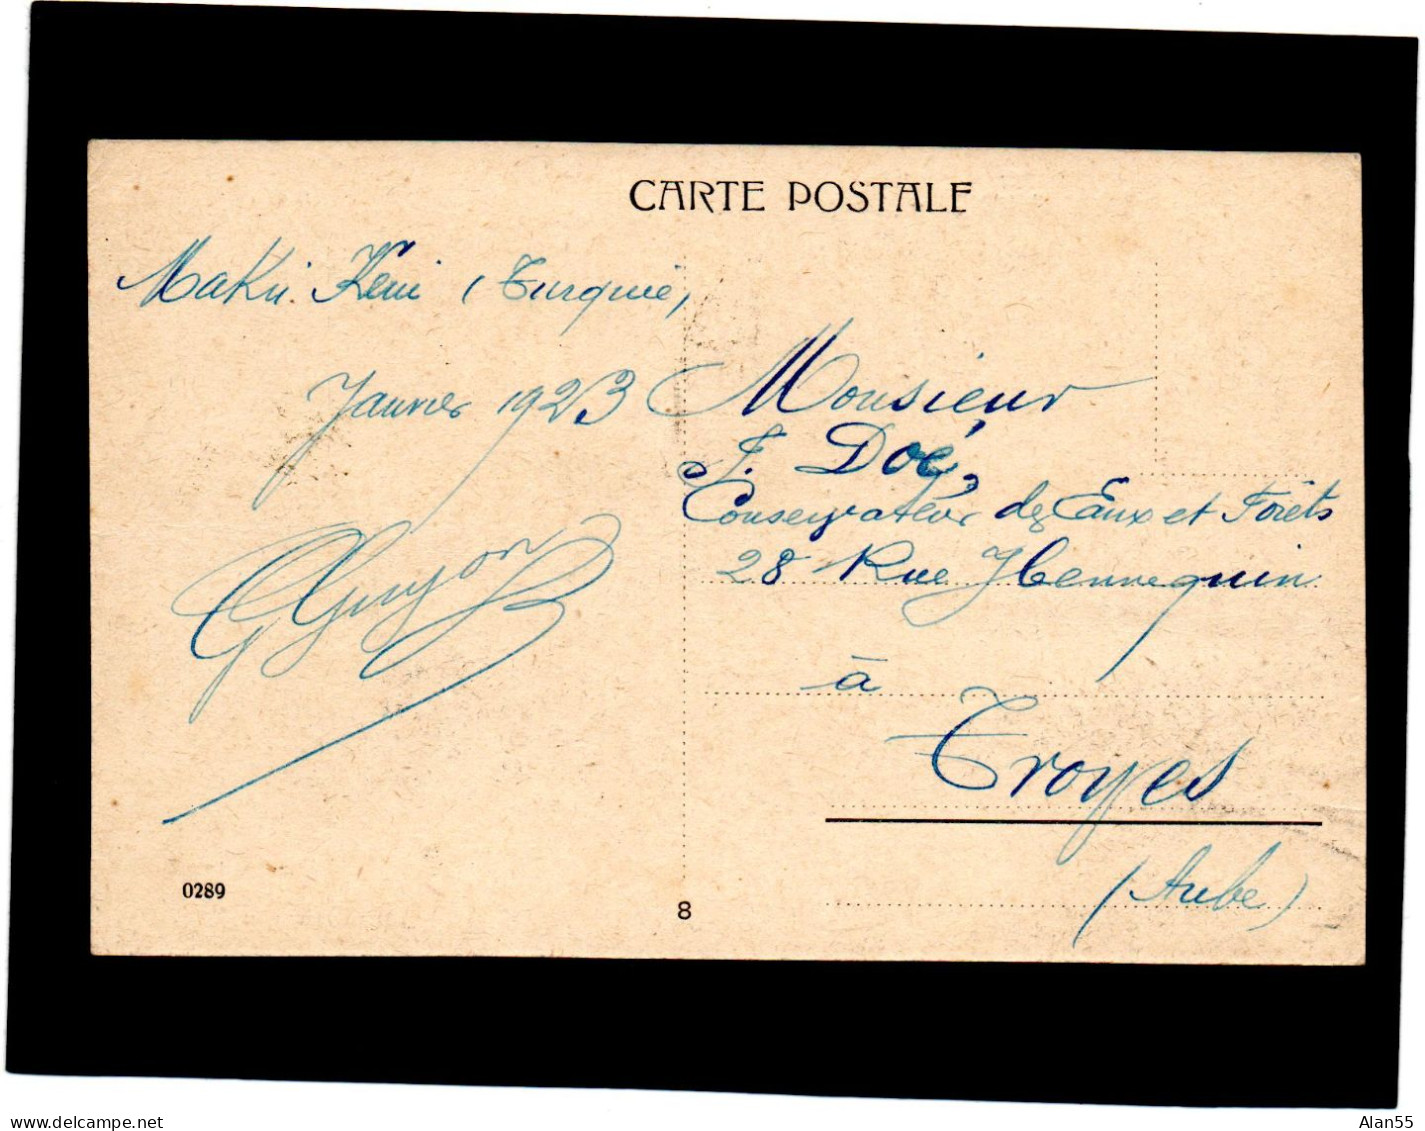 CARTE POSTALE
Makri Keui (Turquie)
Janvier 1923
GGuyon
Monsieur
F. Doé,
Conservateur des Eaux et Forêts
28 Rue Hennequin
à
Troyes
(Aube)
0289
8
www.delcampe.net
Alan55